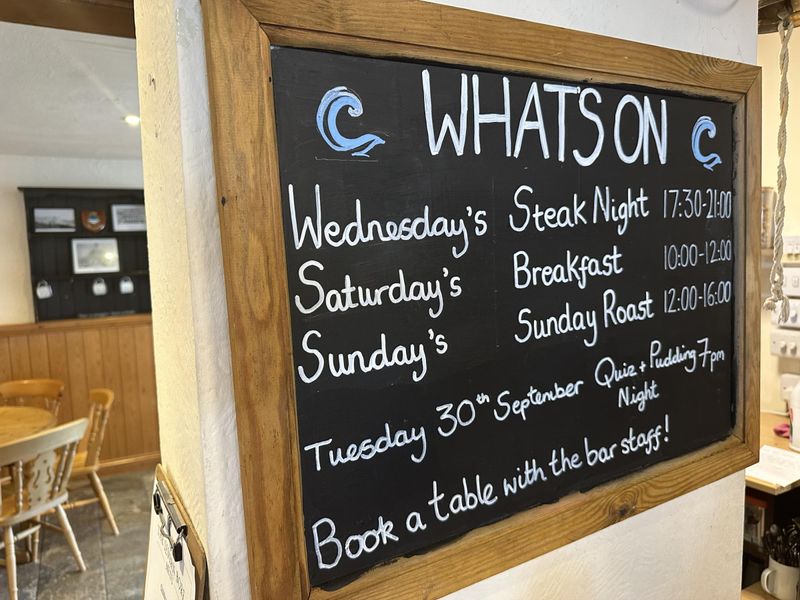 WHAT'S ON
Wednesday's Steak Night 17:30-21:00
Saturday's Breakfast 10:00-12:00
Sunday's Sunday Roast 12:00-16:00
Tuesday 30th September Quiz + Pudding 7pm
Night
Book a table with the bar staff!